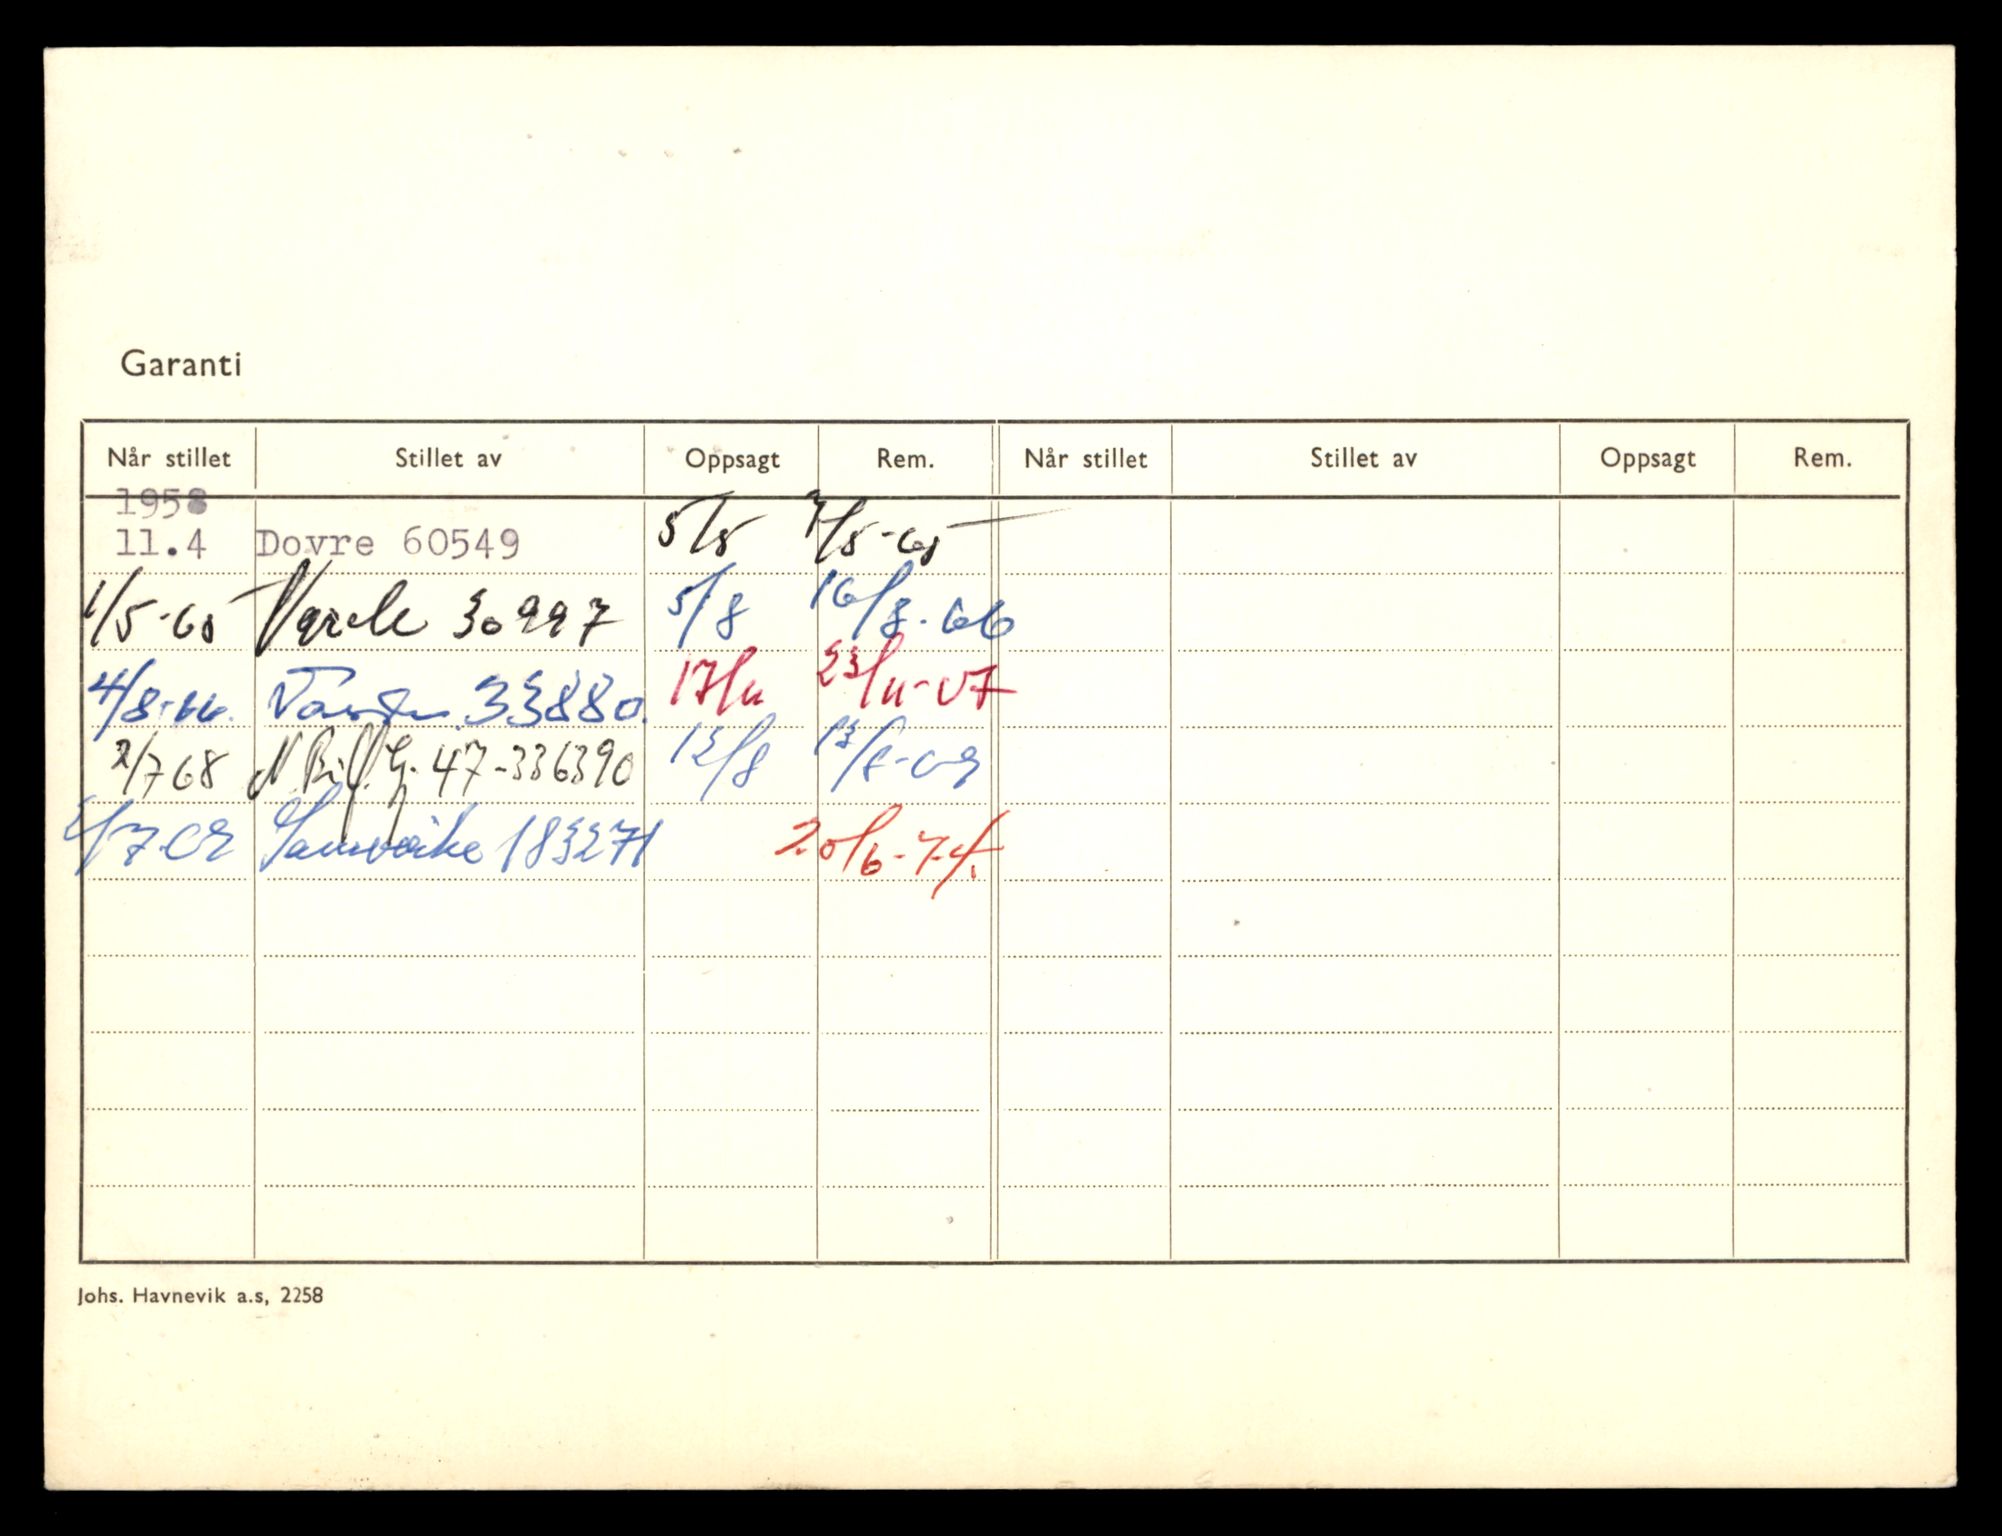 Garanti
Når stillet Stillet av Oppsagt Rem. Når stillet Stillet av Oppsagt Rem.
1958
11.4 Dovre 60549 5/5 7/5-65
1/5-65 30997 5/8 16/8-66
4/8-66. 33880. 17/11 23/11-67
2/7 68 N. Bilf. G. 47-336390 12/8 13/8-69
1/7-69 Samvirke 183271 20/6-74.
Johs. Havnevik a.s, 2258